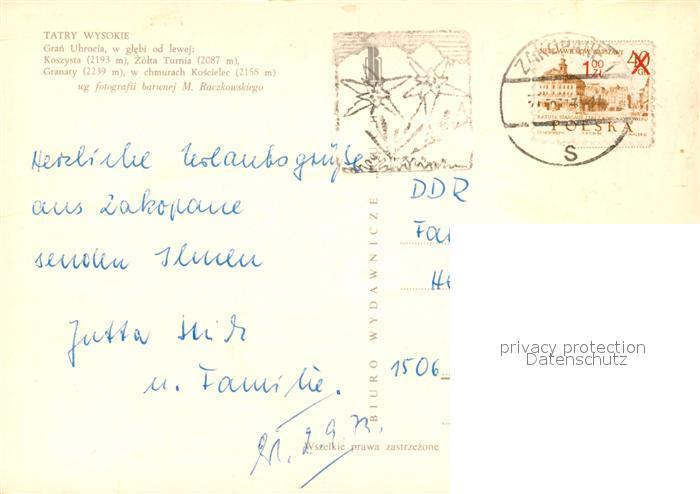 TATRY WYSOKIE
Grań Uhrocia, w głębi od lewej:
Koszysta (2193 m), Żółta Turnia (2087 m),
Granaty (2239 m), w chmurach Kościelec (2158 m)
wg fotografii barwnej M. Raczkowskiego
40
1,00
ZŁ
POLSKA
S
Herzliche Urlaubsgrüße
aus Zakopane
senden Ihnen
Jutta
u. Familie.
DDR
Fa
He
1506
BIURO WYDAWNICZE
Wszelkie prawa zastrzeżone
privacy protection
Datenschutz